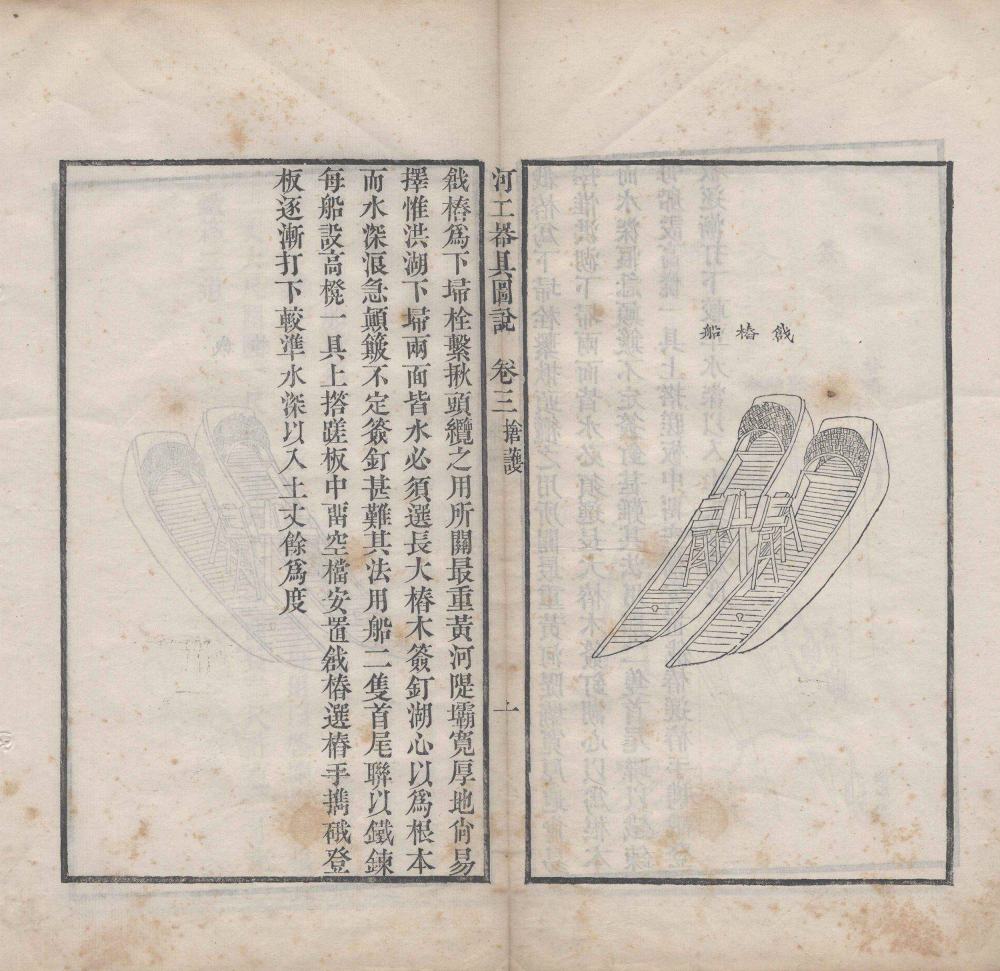 戧樁船
河工器具圖說 卷三 搶護 十
戧樁爲下埽栓繫揪頭纜之用所關最重黃河隄壩寬厚地尙易
擇惟洪湖下埽兩面皆水必須選長大樁木簽釘湖心以爲根本
而水深浪急顛簸不定簽釘甚難其法用船二隻首尾聯以鐵鍊
每船設高櫈一具上搭蹉板中留空檔安置戧樁選樁手攜硪登
板逐漸打下較準水深以入土丈餘爲度